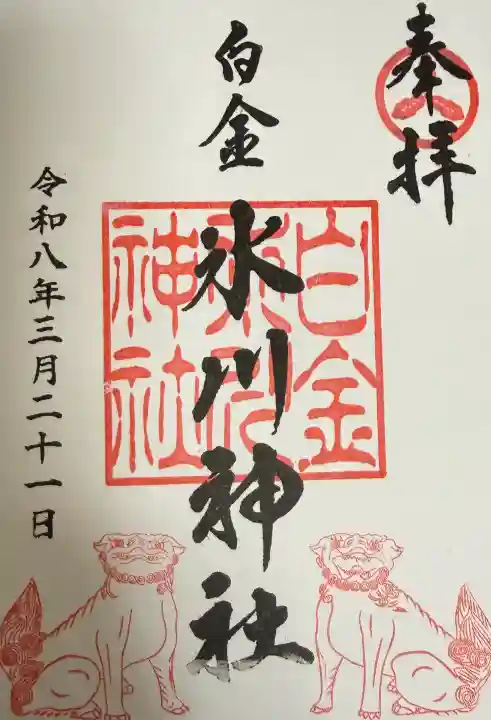 奉拝
白金
氷川神社
白金
氷川
神社
令和八年三月二十一日